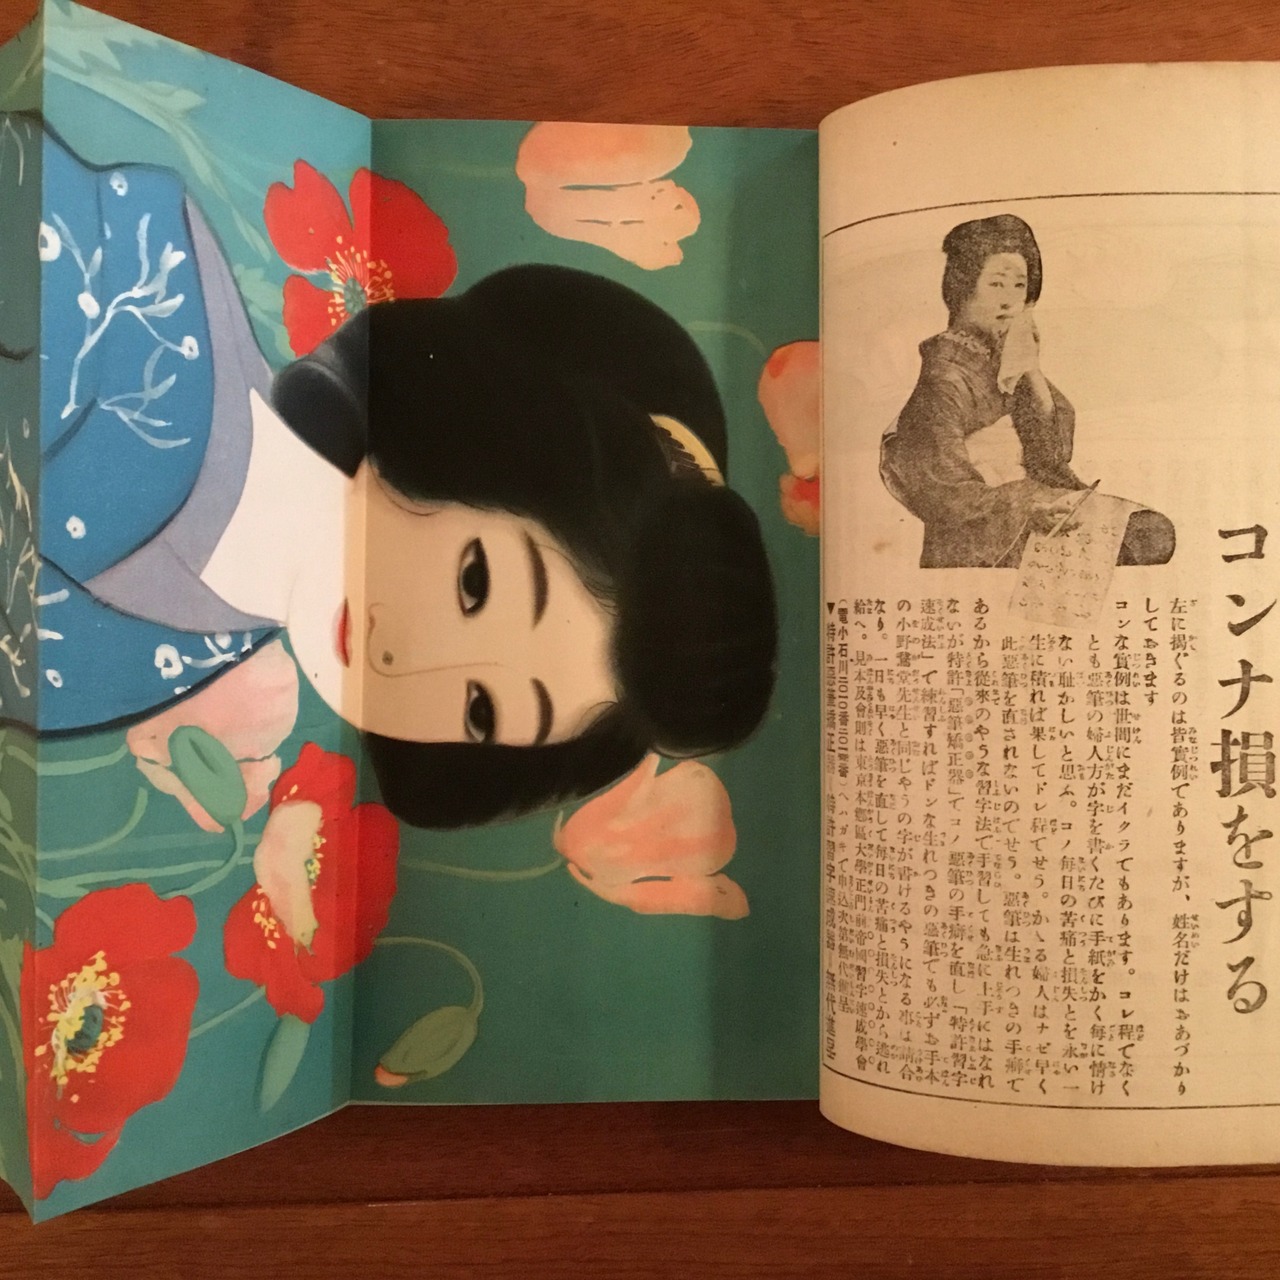 コンナ損をする
左に揭ぐるのは皆實例でありますが、姓名だけはおあづかり
しておきます
コンな實例は世間にまだイクラでもあります。コレ程でなく
とも惡筆の婦人方が字を書くたびに手紙をかく每に情け
ない恥かしいと思ふ。コノ每日の苦痛と損失とを永い一
生に積れば果してドレ程でせう。かゝる婦人はナゼ早く
此惡筆を直されないのでせう。惡筆は生れつきの手癖で
あるから從來のやうな習字法で手習しても急に上手にはなれ
ないが特許「惡筆矯正器」でコノ惡筆の手癖を直し「特許習字
速成法」で練習すればドンな生れつきの惡筆でも必ずお手本
の小野鵞堂先生と同じやうの字が書けるやうになる事は請合
なり。一日も早く惡筆を直して每日の苦痛と損失とから逃れ
給へ。見本及會則は東京本鄕區大學正門前帝國習字速成學會
(電小石川)へハガキで申込次第無代進呈
▼特許惡筆矯正器 特許習字 無代進呈